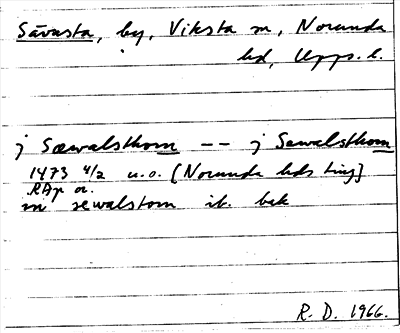 Sävasta, by, Viksta sn, Norunda
hd, Upps. l.
j Sæwalsthom -- j Sewalsthom
1473 4/2 u.o. [Norunda hds ting]
RAp or.
in sewalstom ib. bak
R. D. 1966.